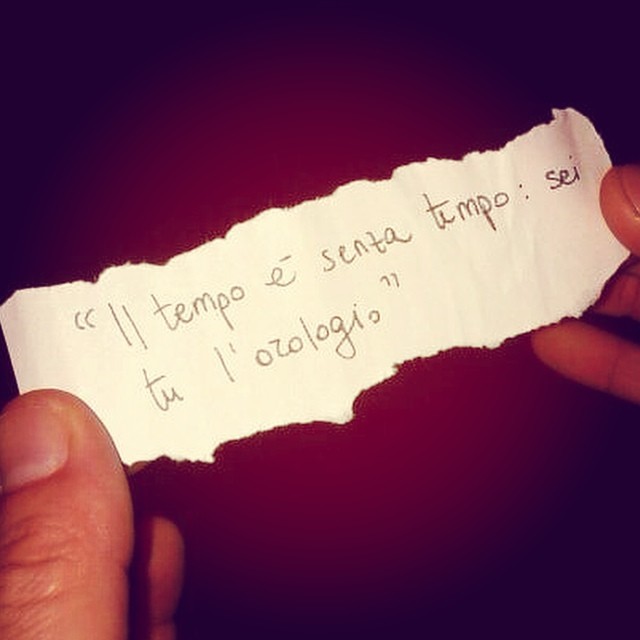 “Il tempo é senza tempo: sei
tu l'orologio”